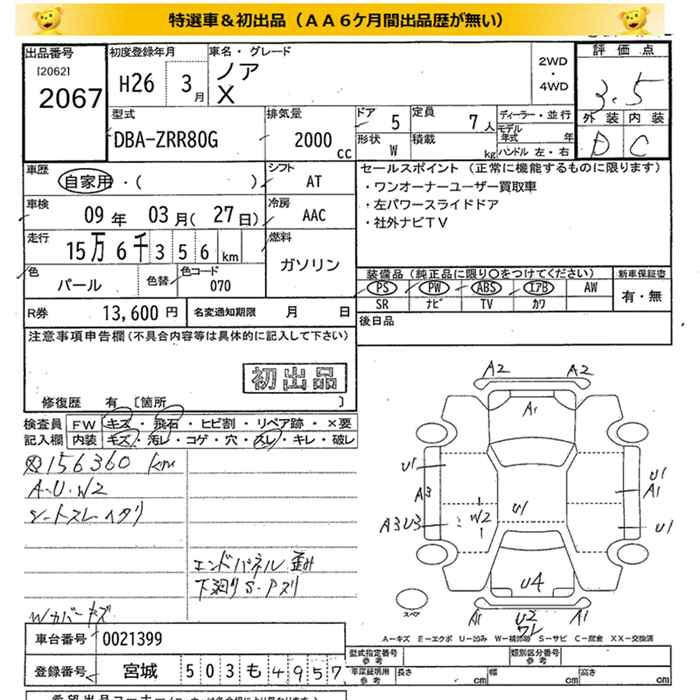 特選車＆初出品（ＡＡ６ケ月間出品歴が無い）
出品番号
[2062]
2067
初度登録年月
H26 3月
車名・グレード
ノア
X
2WD
・
4WD
評価点
3.5
外装 内装
D C
型式
DBA-ZRR80G
排気量
2000 cc
ドア 5
形状 W
定員 7人
積載 kg
ディーラー・並行
モデル年式 年
ハンドル 左・右
車歴
自家用・( )
シフト
AT
車検
09年 03月(27日)
冷房
AAC
走行
15万6千356km
燃料
ガソリン
色
パール
色替
色コード
070
R券 13,600円
名変通知期限 月 日
セールスポイント（正常に機能するものに限ります）
・ワンオーナーユーザー買取車
・左パワースライドドア
・社外ナビＴＶ
装備品（純正品に限り○をつけてください）
新車保証書
PS PW ABS ｴｱB AW
SR ﾅﾋﾞ TV ｶﾜ
有・無
後日品
注意事項申告欄(不具合内容等は具体的に記入して下さい)
初出品
修復歴 有〔箇所 〕
検査員記入欄
FW キズ・飛石・ヒビ割・リペア跡・×要
内装 キズ・汚レ・コゲ・穴・スレ・キレ・破レ
156360 km
A.U.W2
シートスレ.ヘタリ
エンドパネル 歪み
下廻りS.Pスリ
Wカバーキズ
A2 A2
A1
U1
A3
A3U3
W2
U1
U1
A1
U1
U4
A1 U2 A1
スペア
A－キズ E－エクボ U－凹み W－補修跡 S－サビ C－腐食 XX－交換済
車台番号 0021399
登録番号 宮城 503 も 4957
型式指定番号
参考
類別区分番号
参考
車庫証明用
参考
長さ cm 幅 cm 高さ cm